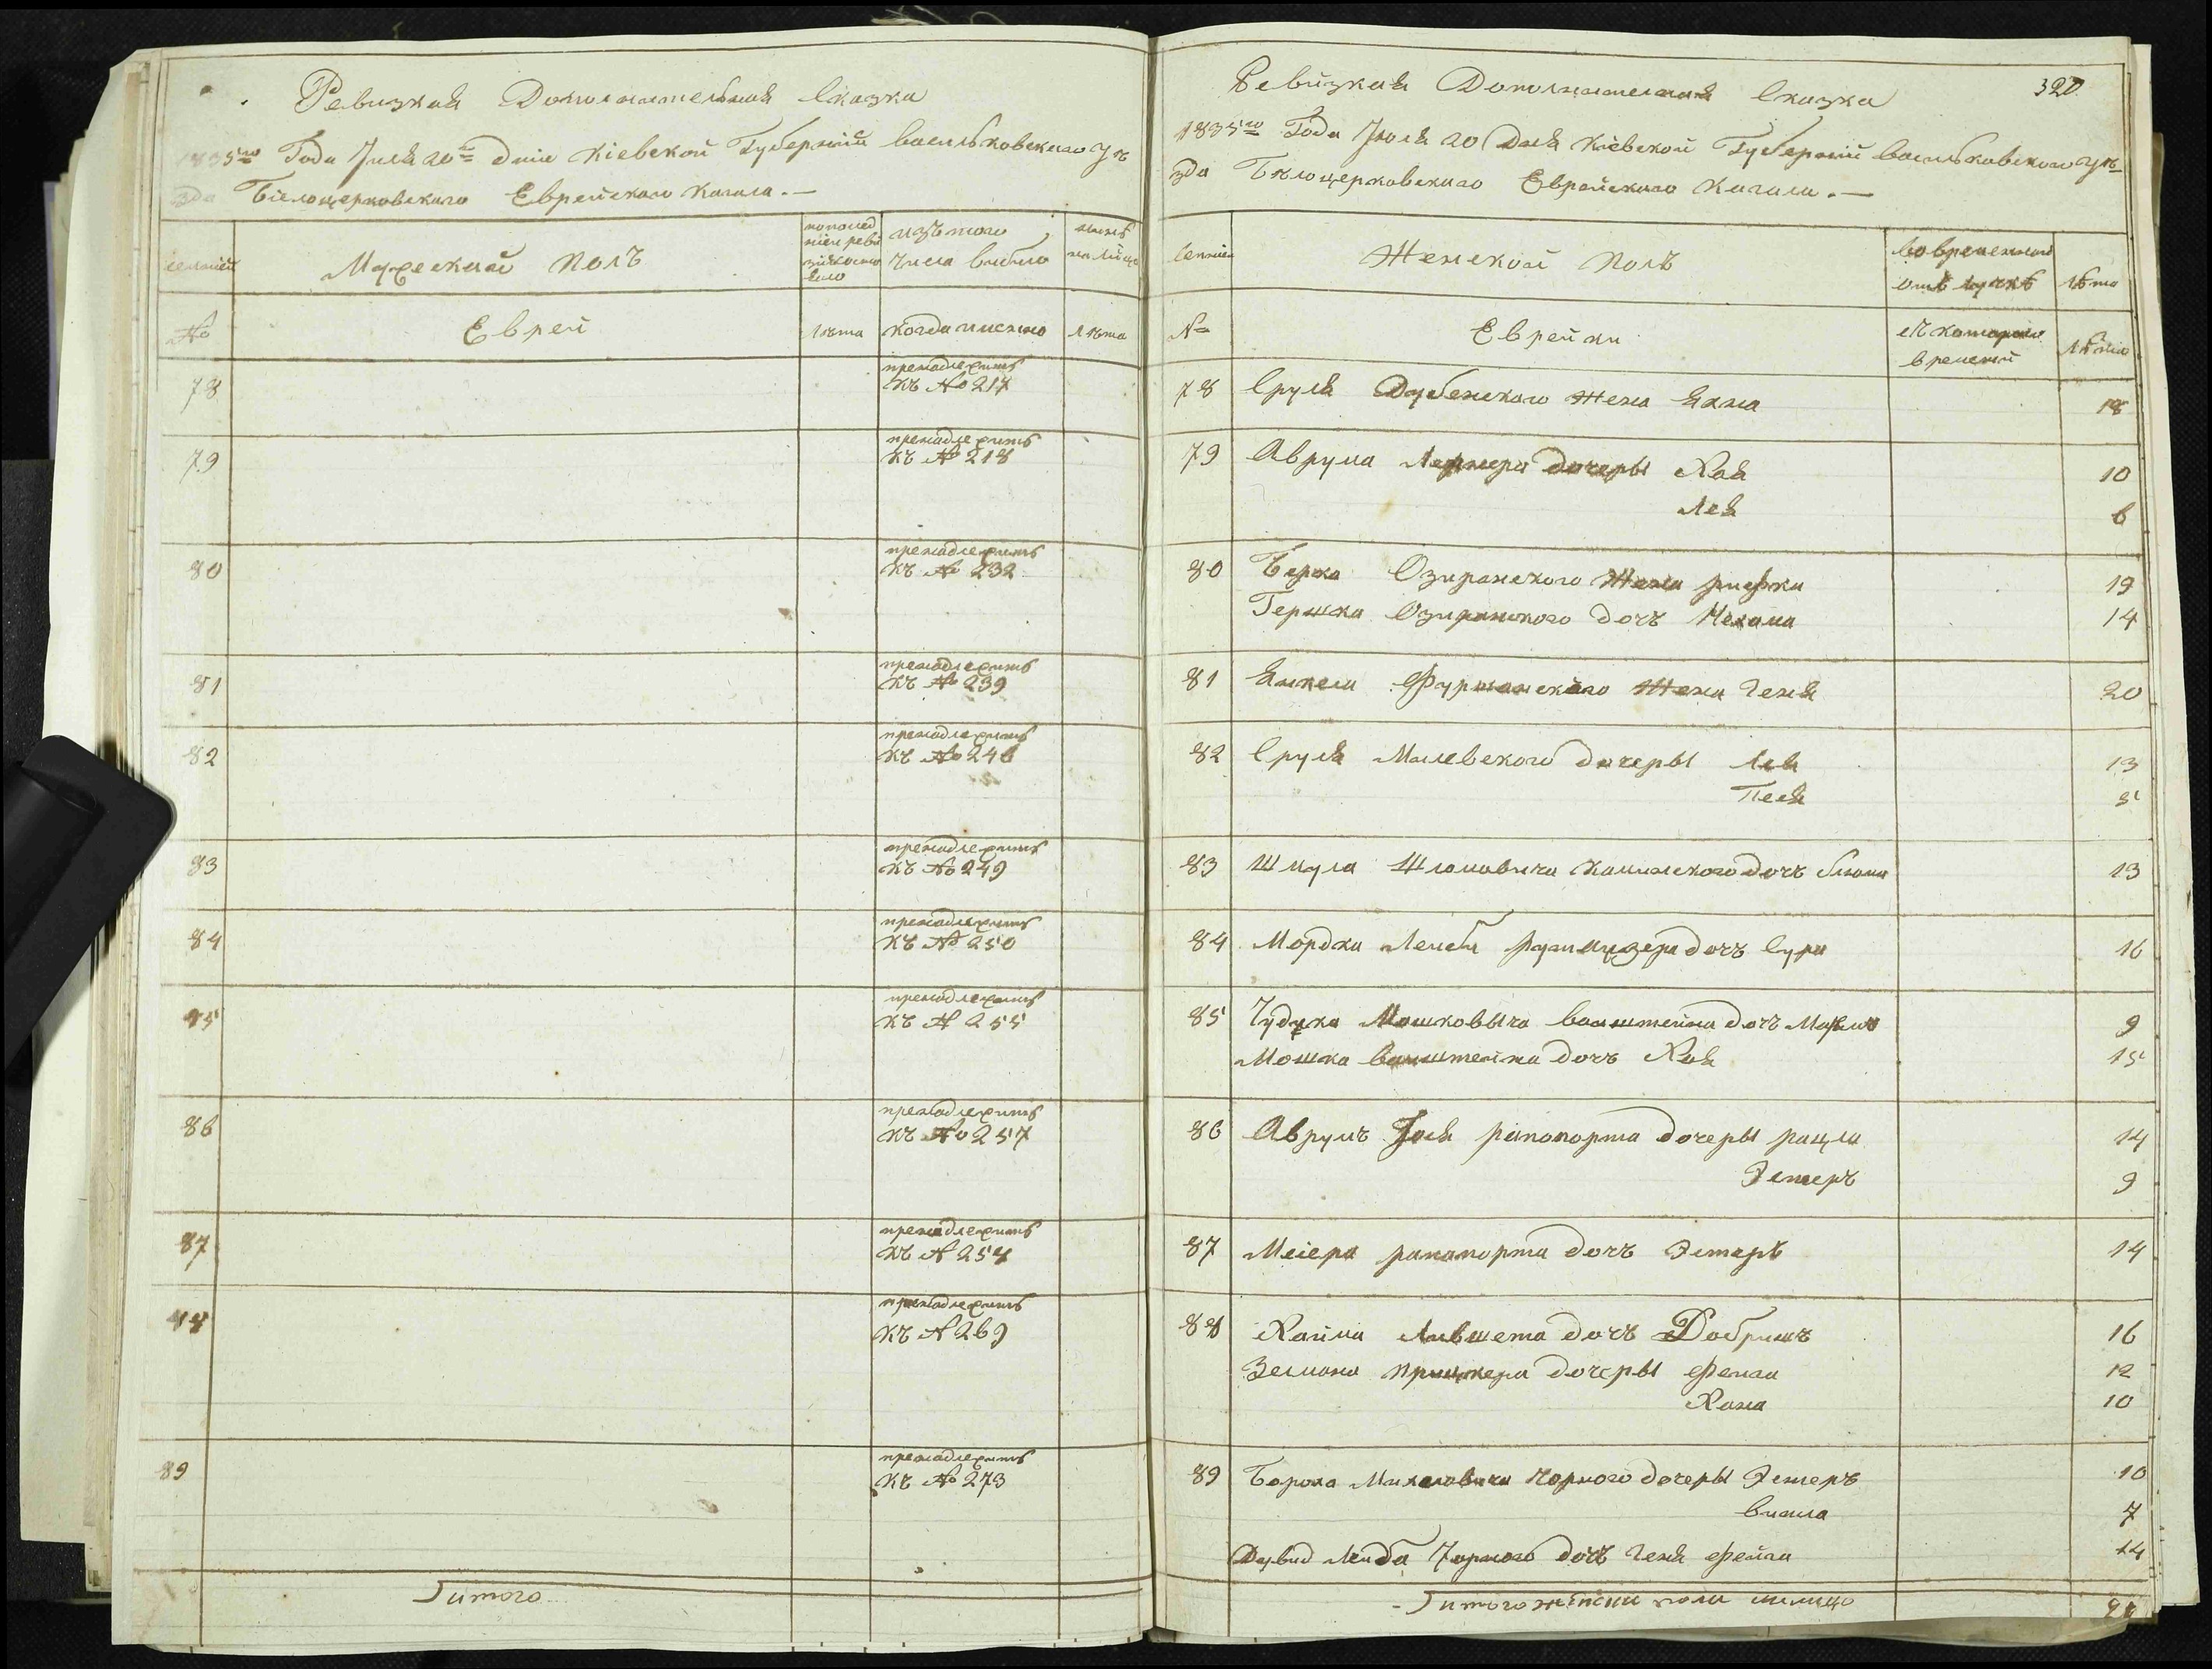 Ревизкая Дополнительная Сказка
1835го Года Июля 20го дня Кіевской Губерніи Васильковскаго Уѣ
зда Бѣлоцерковскаго Еврейскаго Кагала.—
семѣи
Мужескай Полъ
изъ того
числа выбыло
на лицо
№
Еврей
лѣта
когда имѣнно
лѣта
78
пренадлежитъ
къ № 217
79
пренадлежитъ
къ № 218
80
пренадлежитъ
къ № 232
81
пренадлежитъ
къ № 239
82
пренадлежитъ
къ № 246
83
пренадлежитъ
къ № 249
84
пренадлежитъ
къ № 250
85
пренадлежитъ
къ № 255
86
пренадлежитъ
къ № 257
87
пренадлежитъ
къ № 258
88
пренадлежитъ
къ № 269
89
пренадлежитъ
къ № 273
Итого
320
Ревизкая Дополнителная Сказка
1835го Года Июля 20 Дня Кіевской Губерніи Васильковского Уѣ
зда Бѣлоцерковскаго Еврейскаго Кагала.—
семіи
Женской Полъ
Во временной
отлучкѣ
лѣта
№
Еврейки
съ которого
времений
лѣта
78 Сруля Дубенского жена Яхна 18
79 Аврума Лернера дочеры Хая 10
Лея 6
80 Берка Озиранского жена рифка 19
Гершка Озиранского дочъ Нехама 14
81 Янкеля Фурманскаго жена Геня 20
82 Сруля Малевского дочеры Лея 13
Песя 5
83 Шмула Шломовича Каминского дочъ блюма 13
84 Мордка Лейбы дочъ Сура 16
85 Юдка Мошковыча ваинштейна дочъ 9
Мошка ваинштейна дочъ Хая 15
86 Аврумъ Иося рапопорта дочеры рацля 14
Эстеръ 9
87 Меіера рапапорта дочъ Эстеръ 14
88 Хайма Лившета дочъ Добришъ 16
Зелмана дочеры фейга 12
Хана 10
89 Бороха Михелевича Чорного дочеры Эстеръ 10
витла 7
Дувид Лейба Чорного дочъ Геня фейга 14
Итого женска пола налицо